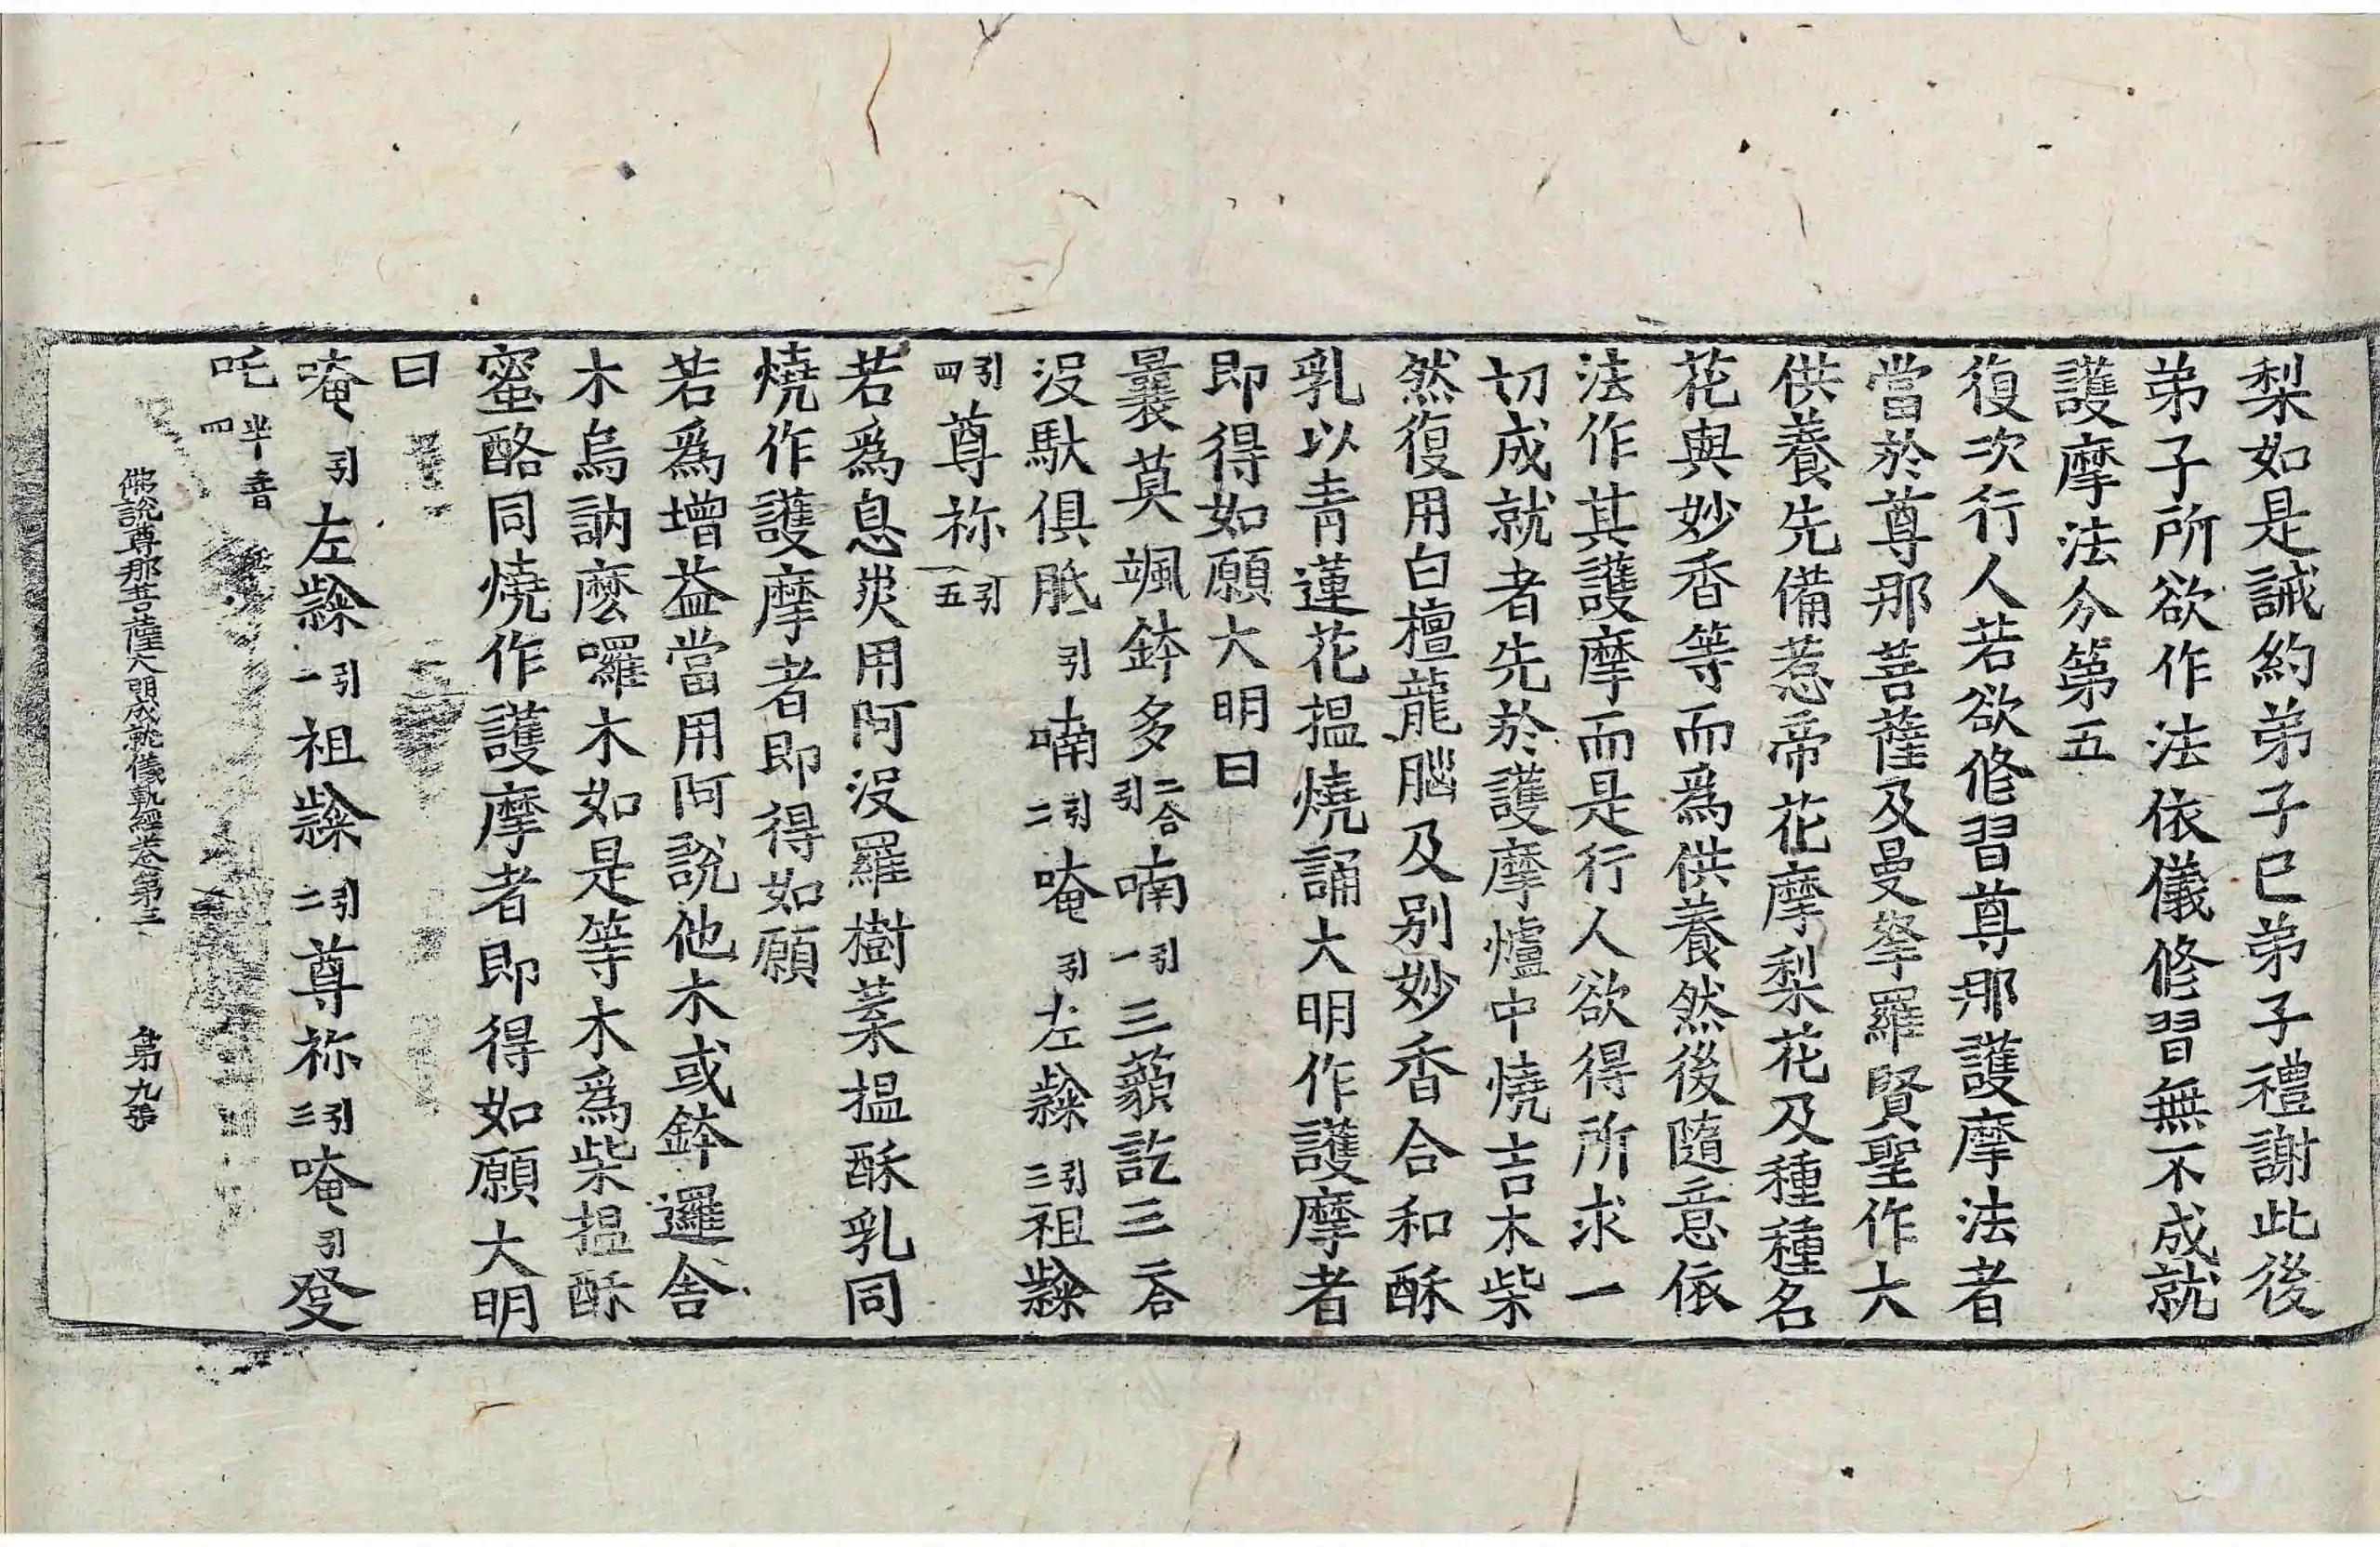 梨如是誡約弟子已弟子禮謝此後
弟子所欲作法依儀修習無不成就
護摩法分第五
復次行人若欲修習尊那護摩法者
當於尊那菩薩及曼拏羅賢聖作大
供養先備惹帝花摩梨花及種種名
花與妙香等而爲供養然後隨意依
法作其護摩而是行人欲得所求一
切成就者先於護摩爐中燒吉木柴
然復用白檀龍腦及别妙香合和酥
乳以青蓮花揾燒誦大明作護摩者
即得如願大明曰
曩莫颯鉢多二合引喃引一三藐訖三二合
沒馱俱胝引喃引二唵引左㘑引三祖㘑
引四尊祢引五
若爲息災用阿沒羅樹葉揾酥乳同
燒作護摩者即得如願
若爲增益當用阿說他木或鉢邏舍
木烏訥麽囉木如是等木爲柴揾酥
蜜酪同燒作護摩者即得如願大明
曰
唵引左㘑引一祖㘑引二尊祢引三唵引發
吒半音四
佛說尊那菩薩大明成就儀軌經卷第三 第九張